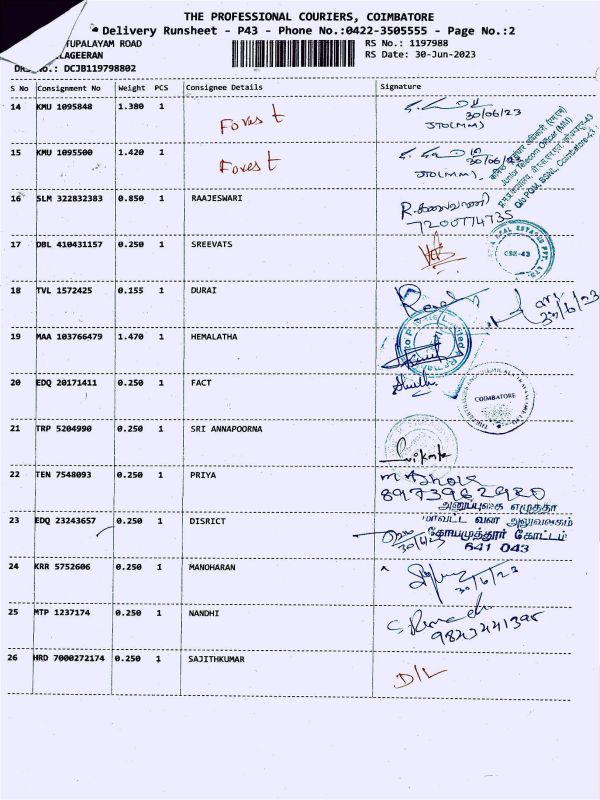 THE PROFESSIONAL COURIERS, COIMBATORE
Delivery Runsheet - P43 - Phone No.:0422-3505555 - Page No.:2
TUPALAYAM ROAD RS No.: 1197988
LAGEERAN RS Date: 30-Jun-2023
DRS No.: DCJB119798802
S No Consignment No Weight PCS Consignee Details Signature
14 KMU 1095848 1.380 1 Forest 30/06/23
JTO(MM)
15 KMU 1095500 1.420 1 Forest 30/06/23
JTO(MM)
Junior Telecom Officer (MM)
O/o PGM, BSNL, Coimbatore-43
16 SLM 322832383 0.850 1 RAAJESWARI R.கலைவாணி
7200774735
17 DBL 410431157 0.250 1 SREEVATS
REAL ESTATES PVT. LTD.
CBE-43
18 TVL 1572425 0.155 1 DURAI
30/6/23
19 MAA 103766479 1.470 1 HEMALATHA
20 EDQ 20171411 0.250 1 FACT
COIMBATORE
21 TRP 5204990 0.250 1 SRI ANNAPOORNA
22 TEN 7548093 0.250 1 PRIYA M Ashok
8973962920
அனுப்புகை எழுத்தர்
23 EDQ 23243657 0.250 1 DISRICT மாவட்ட வன அலுவலகம்
கோயமுத்தூர் கோட்டம்
641 043
24 KRR 5752606 0.250 1 MANOHARAN
30/6/23
25 MTP 1237174 0.250 1 NANDHI
9843441395
26 HRD 7000272174 0.250 1 SAJITHKUMAR D/L